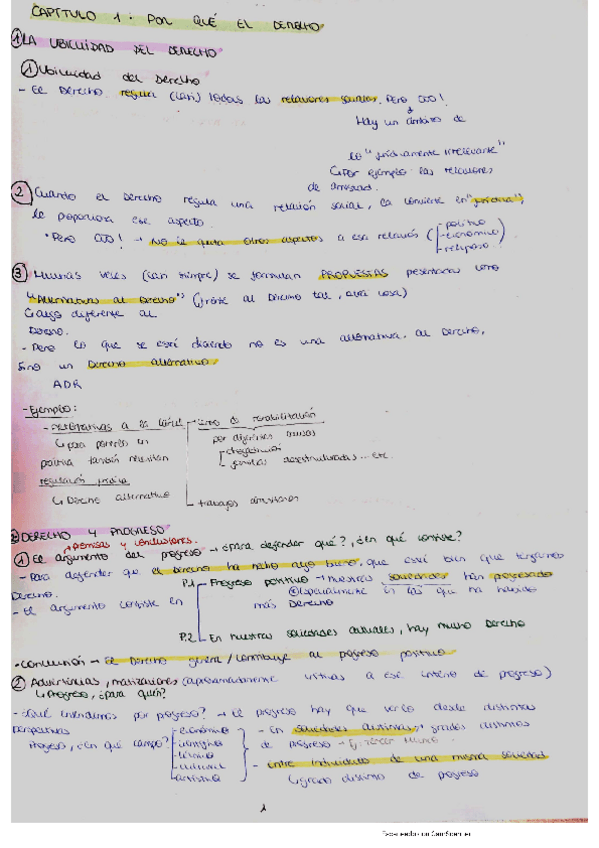 CAPÍTULO 1: POR QUÉ EL DERECHO
① LA UBICUIDAD DEL DERECHO
① Ubicuidad del Derecho
- El Derecho regula (casi) todas las relaciones sociales. Pero OJO!
Hay un ámbito de
lo "jurídicamente irrelevante"
↳ Por ejemplo: las relaciones
de amistad.
② Cuando el Derecho regula una relación social, la convierte en "jurídica",
le proporciona ese aspecto.
* Pero OJO! → No le quita otros aspectos a esa relación (
- político
- económico
- religioso
)
③ Muchas veces (casi siempre) se formulan PROPUESTAS presentadas como
"Alternativas al Derecho" (frente al Derecho tal, otra cosa)
↳ algo diferente al
Derecho.
- Pero lo que se está diciendo no es una alternativa al Derecho,
sino un Derecho alternativo.
ADR
- Ejemplo:
- Alternativas a la cárcel
centro de rehabilitación
↳ para ponerlas en
por diferentes causas
práctica también necesitan
drogadicción
familias desestructuradas... etc.
regulación jurídica
↳ Derecho alternativo
trabajos
② DERECHO Y PROGRESO
↗ premisas y conclusiones.
① El argumento del progreso → ¿para defender qué?, ¿en qué consiste?
- Para defender que el derecho ha hecho algo bueno, que está bien que tengamos
Derecho.
P.1 Progreso positivo → nuestras sociedades han progresado
- El argumento consiste en
especialmente en las que ha habido
más Derecho
P.2 En nuestras sociedades actuales, hay mucho Derecho
- Conclusión → El Derecho genera/contribuye al progreso positivo
② Advertencias, matizaciones (aproximadamente críticas a ese criterio de progreso)
↳ Progreso, ¿para quién?
- ¿Qué entendemos por progreso? → el progreso hay que verlo desde distintas
perspectivas
Progreso, ¿en qué campo?
- económico
- científico
- técnico
- cultural
- artístico
- En sociedades distintas, grados distintos
de progreso → Ej: tercer Mundo.
- entre individuos de una misma sociedad
↳ grado distinto de progreso
1
Escaneado con CamScanner